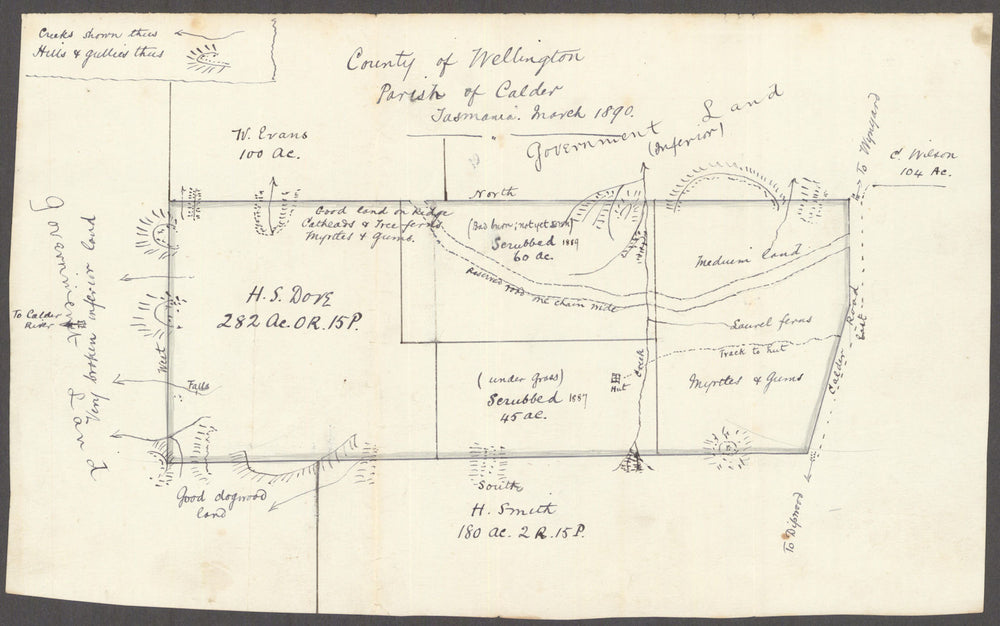 Creeks shown thus
Hills & gullies thus
County of Wellington
Parish of Calder
Tasmania. March 1890.
W. Evans
100 Ac.
Government Land
(Inferior)
To Wynyard
C. Wilson
104 Ac.
North
Good land on Ridge
Catheads & Tree ferns
Myrtles & Gums.
(Bad burn; not yet sown)
Scrubbed 1889
60 ac.
Medium land
Reserved road one chain wide
Government Land
Very broken inferior land
To Calder
River
West
H. S. Dove
282 Ac. 0 R. 15 P.
Laurel ferns
Track to hut
Calder Road
East
Creek
Hut
Myrtles & Gums
(under grass)
Scrubbed 1887
45 ac.
Falls
Good dogwood
land
South
H. Smith
180 Ac. 2 R. 15 P.
To Dipwood